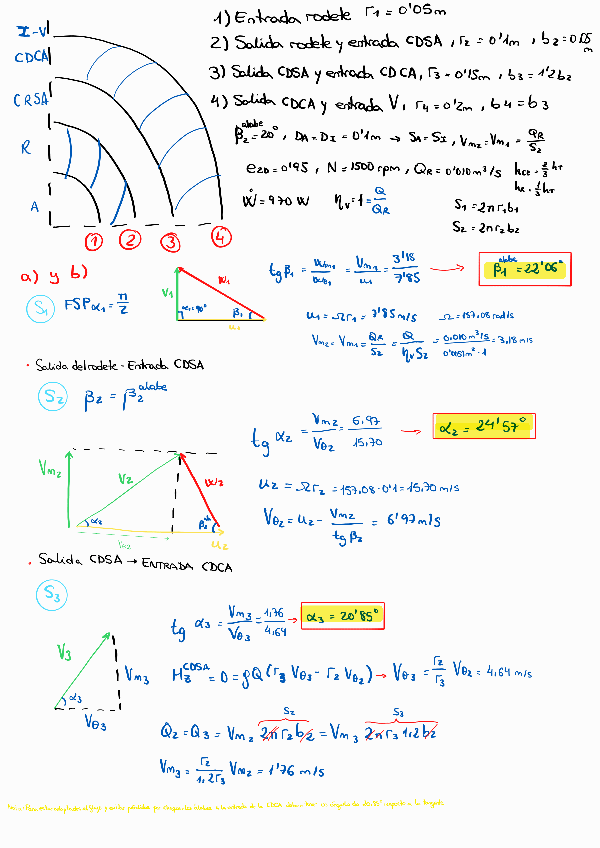 1) Entrada rodete r1 = 0'05m
I-V
2) Salida rodete y entrada CDSA, r2 = 0'1m, b2 = 0'05 m
CDCA
3) Salida CDSA y entrada CDCA, r3 = 0'15m, b3 = 1'2b2
CRSA
4) Salida CDCA y entrada V, r4 = 0'2m, b4 = b3
R
β2 alabe = 20°, DA = DI = 0'1m → SA = SI, Vm2 = Vm1 = QR/S2
e2D = 0'95, N = 1500 rpm, QR = 0'010 m³/s hCE = 2/3 hT
hR = 1/3 hT
A
Ẇ = 970 W ηv = 1 = Q/QR S1 = 2πr1b1
S2 = 2πr2b2
1 2 3 4
a) y b)
S1 FSP α1 = π/2
V1 W1 α1 = 90° β1 u1
tg β1 = Wm1/Wθ1 = Vm1/u1 = 3'18/7'85 → β1 alabe = 22'06°
u1 = Ωr1 = 7'85 m/s Ω = 157,08 rad/s
Vm2 = Vm1 = QR/S2 = Q/ηv S2 = 0,010 m³/s / 0'0051m²·1 = 3,18 m/s
· Salida del rodete - Entrada CDSA
S2 β2 = β2 alabe
tg α2 = Vm2/Vθ2 = 6,97/15,70 → α2 = 24'57°
Vm2 V2 W2 α2 β2 Vθ2 u2
u2 = Ωr2 = 157,08·0'1 = 15,70 m/s
Vθ2 = u2 - Vm2/tg β2 = 6'97 m/s
· Salida CDSA → ENTRADA CDCA
S3
tg α3 = Vm3/Vθ3 = 1,76/4,64 → α3 = 20'85°
V3 Vm3 α3 Vθ3
Mz CDSA = 0 = ρQ(r3 Vθ3 - r2 Vθ2) → Vθ3 = r2/r3 Vθ2 = 4,64 m/s
S2 S3
Q2 = Q3 = Vm2 2πr2b2 = Vm3 2πr3 1,2b2
Vm3 = r2/1,2r3 Vm2 = 1'76 m/s